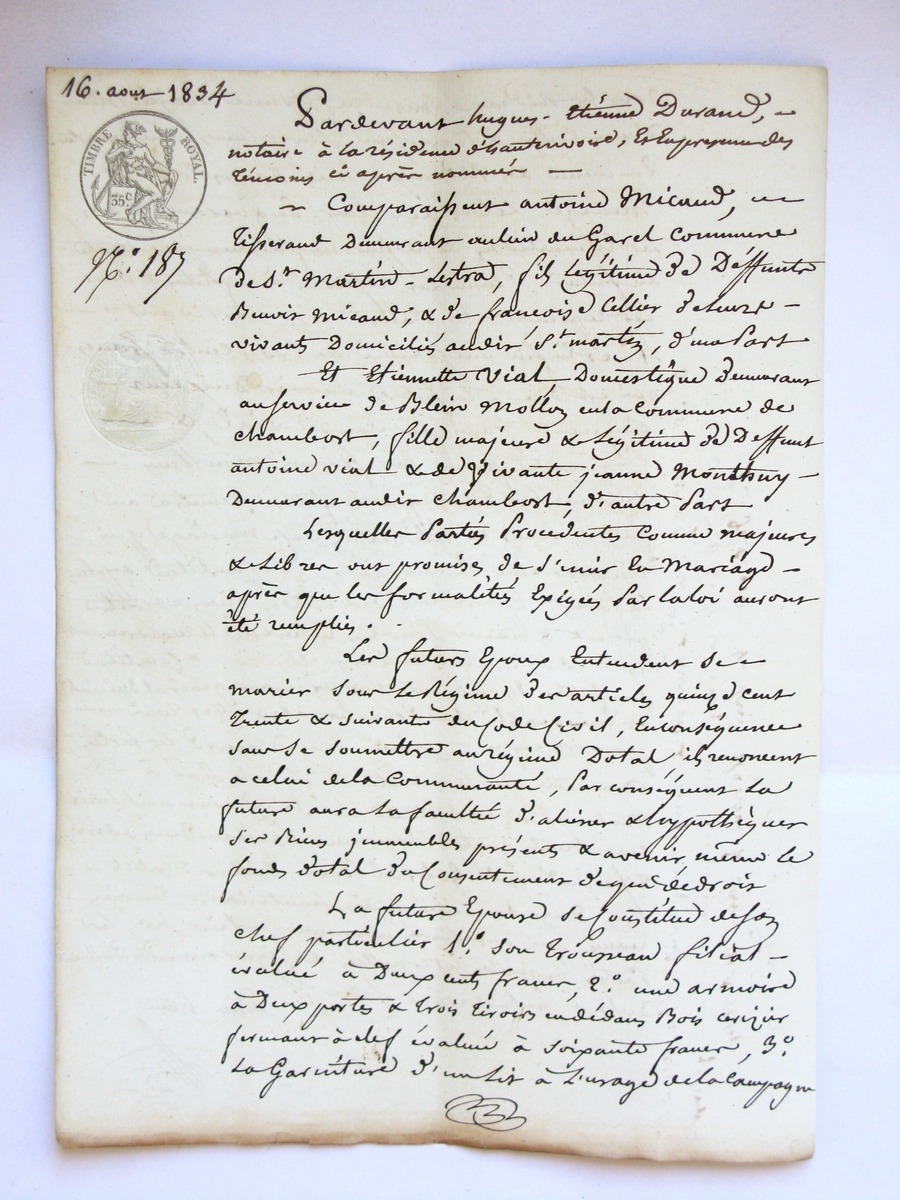 16. aout 1834
TIMBRE ROYAL.
35c
No. 187
Pardevant hugues-Etienne Durand,
notaire à la résidence d'hauterivoire, Et En presence des
témoins ci après nommés
Comparaissent antoine Micaud,
tisserand Demeurant au lieu du Garel Commune
de St. Martin-Lestra, fils legitime de Deffunts
Benoit Micaud, & de francoise Cellier de leurs
vivants Domiciliés audit St. martin, d'une Part
Et Etiennette Vial Domestique Demeurant
au service de Blein Mollon en la Commune de
Chambost, fille majeure & Légitime de Deffunt
antoine vial & de vivante jeanne Monthuy
Demeurant audit Chambost, d'autre Part
Lesquelles Parties Procédentes Comme majeures
& Libres ont promises de s'unir En Mariage
après que les formalités Exigées Par la loi auront
été remplies.
Les futurs Epoux Entendent se
marier sous le Régime des articles quinze cent
trente & suivants du Code Civil, En conséquence
sans se soumettre au régime Dotal ils renoncent
a celui de la Communauté, Par conséquent La
future aura la faculté d'aliéner & hypothèquer
ses Biens immeubles présents & avenir même le
fonds Dotal du Consentement de qui de droit
La future Epouse se Constitue de son
chef particulier 1o. son trousseau filial
évalué à Deux cents francs, 2o. une armoire
à Deux portes & trois tiroirs en dédans Bois cerisier
fermant à clef évalué à soixante francs, 3o.
La Garniture d'un Lit à l'usage de la Campagne